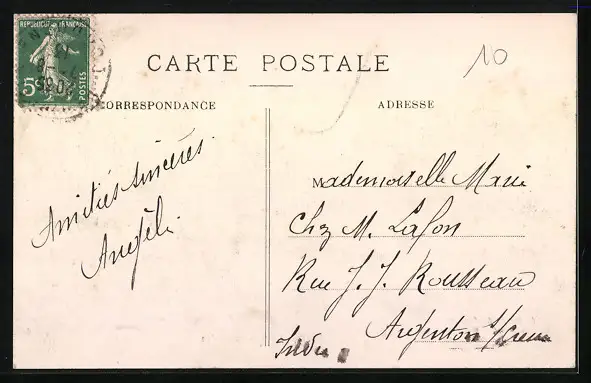 REPUBLIQUE FRANÇAISE
5c
POSTES
10
CARTE POSTALE
CORRESPONDANCE
ADRESSE
Amitiés sincères.
Angèle.
Mademoiselle Marie
Chez M. Lafon
Rue J. J. Rousseau
Argenton s/Creuse
Indre